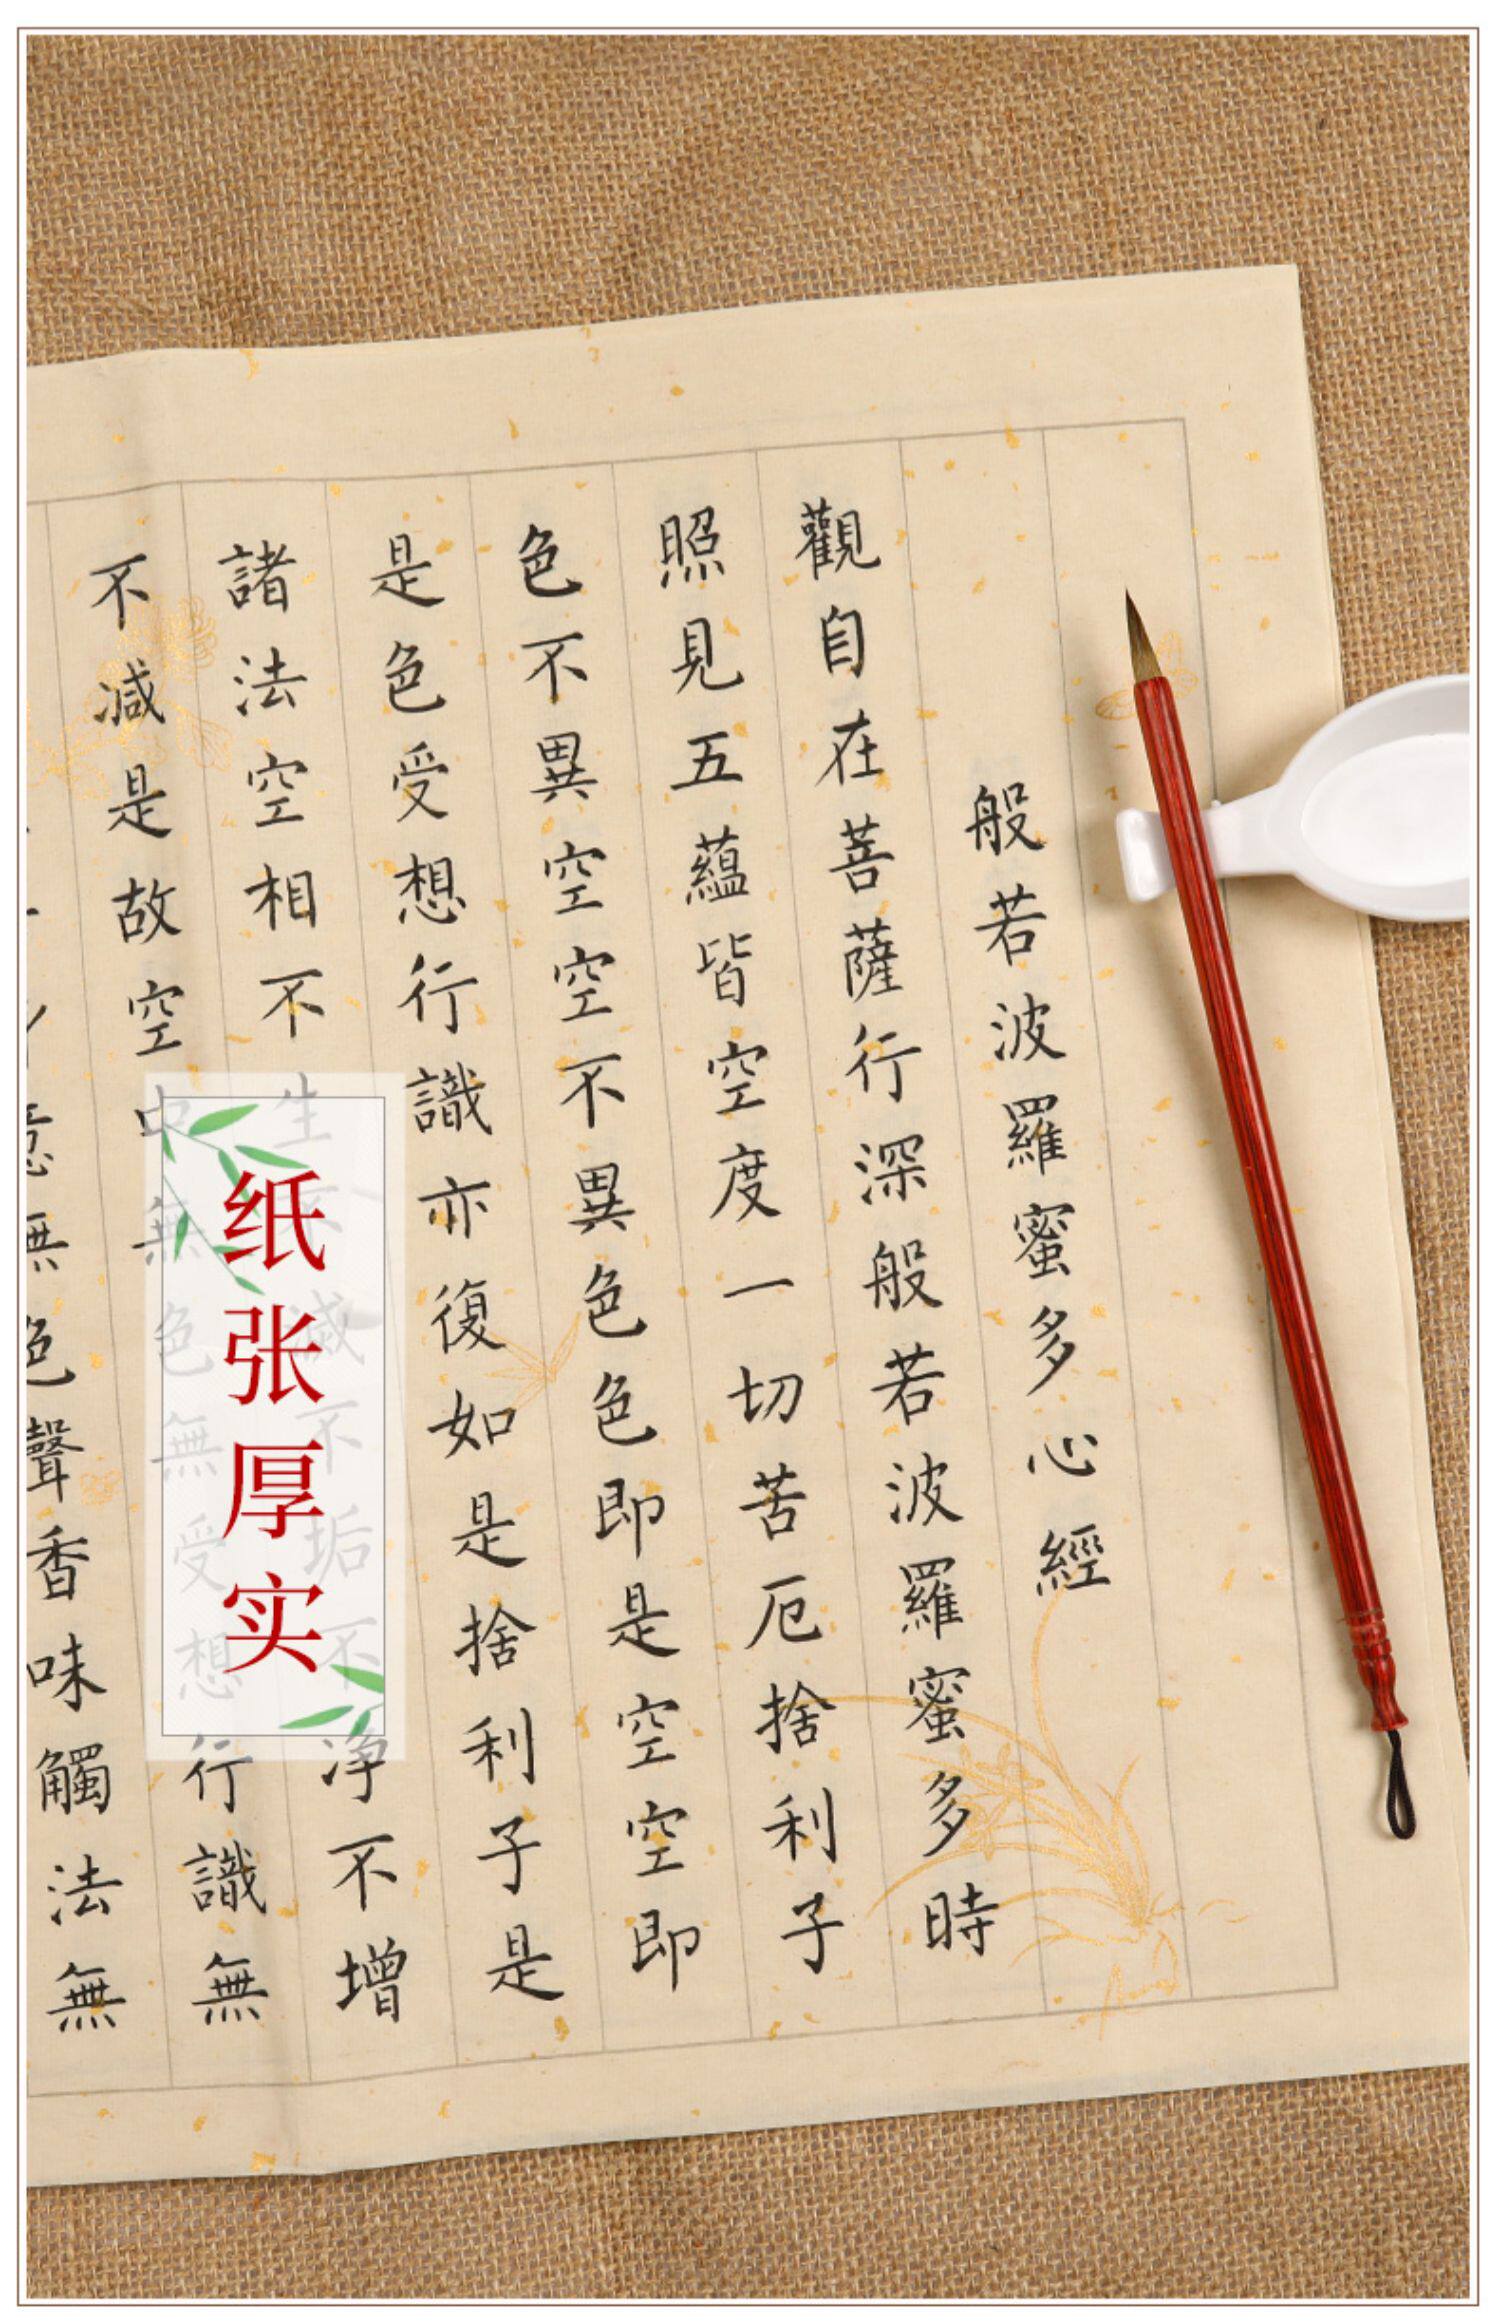 般若波羅蜜多心經
觀自在菩薩行深般若波羅蜜多時
照見五蘊皆空度一切苦厄捨利子
色不異空空不異色色即是空空即
是色受想行識亦復如是捨利子是
諸法空相不生不滅不垢不净不增
不减是故空中無色無受想行識無
意無色聲香味觸法無
纸张厚实